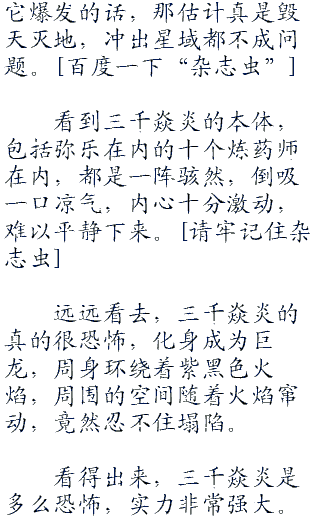 它爆发的话，那估计真是毁
天灭地，冲出星域都不成问
题。[百度一下“杂志虫”]
看到三千焱炎的本体，
包括弥乐在内的十个炼药师
在内，都是一阵骇然，倒吸
一口凉气，内心十分激动，
难以平静下来。[请牢记住杂
志虫]
远远看去，三千焱炎的
真的很恐怖，化身成为巨
龙，周身环绕着紫黑色火
焰，周围的空间随着火焰窜
动，竟然忍不住塌陷。
看得出来，三千焱炎是
多么恐怖，实力非常强大。